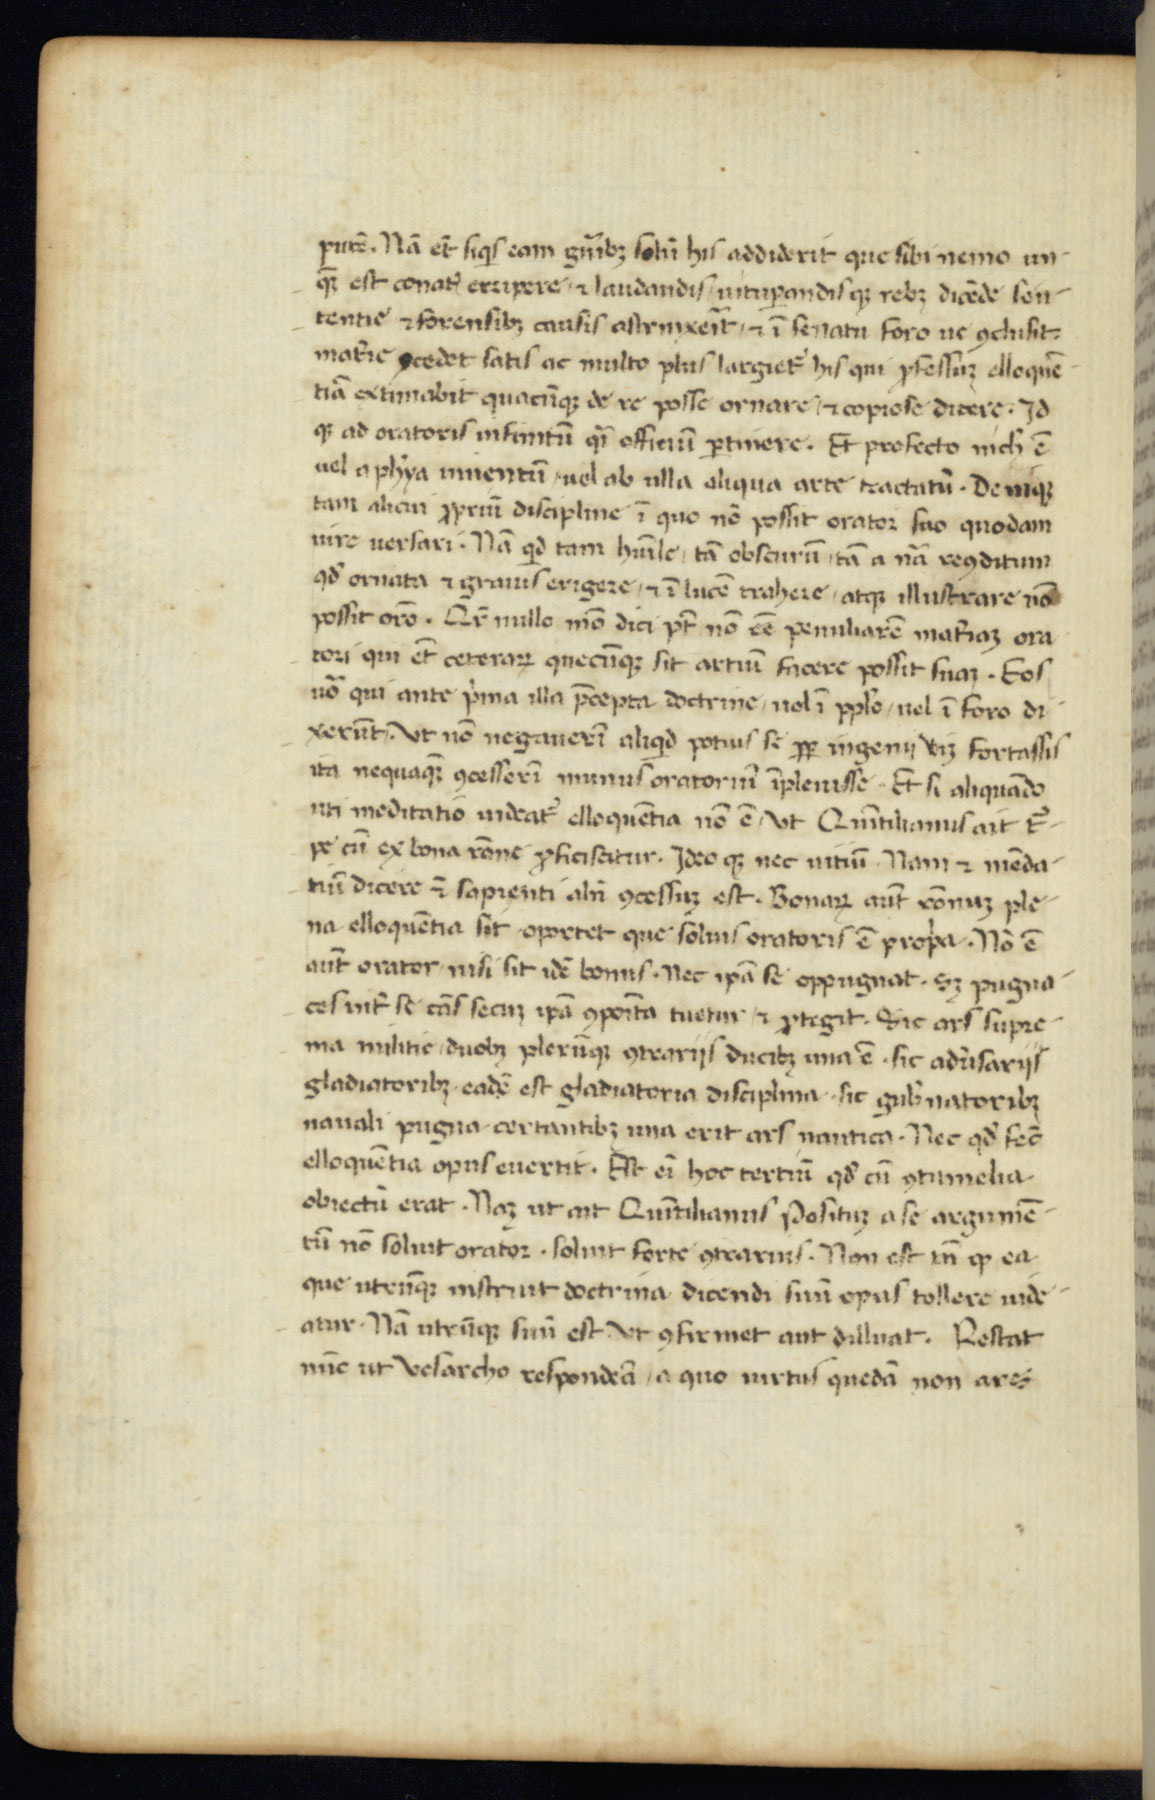 putē. Nā et̄ siq̄s eam gn̄ibꝫ solū his addiderit que sibi nemo un-
q̄ꝫ est conatꝰ erripere ⁊ laudandis uituꝑandisqꝫ rebꝫ dicēde sen-
tentie ⁊ forensibꝫ causis astrinxerit ⁊ ī senatu foro ue ꝯclusit.
materie ꝯcedet satis ac multo plus largietꝰ his qui ꝓfessuꝫ elloquē
tiā extimabit quacūqꝫ de re posse ornare ⁊ copiose dicere. Id
qꝫ ad oratoris infinitū q̄i officiū ꝑtinere. Et profecto nich̄ ē
uel a ph̄ya inuentū uel ab ulla aliqua arte tractatū. Deniqꝫ
tam alicui ꝓpriū discipline ī quo nō possit orator suo quodam
iure uersari. Nā qd tam hūile tā obscurū tā a nā reꝯditum
qd̄ ornata ⁊ grauis erigere ⁊ ī lucē trahere atqꝫ illustrare nō
possit orō. Qr̄ nullo mō dici pt̄ nō eē peculiarē materiaꝫ ora
tori qui et̄ ceteraꝝ quecūqꝫ sit artiū facere possit suaꝫ. Eos
uō qui ante prima illa p̄cepta doctrine uel ī pplo uel ī foro di
xerūt. Vt nō negauerī aliqd potius se ꝓp ingenij uiꝫ fortassis
ita nequaq̄ꝫ ꝯcesserī munus oratoriū īpleuisse. Et si aliquādo
uti meditatio uideatꝰ elloquētia nō ē ut Quītilianus ait t̄-
pe cū ex bona rōne ꝓficiscitur. Ideo qꝫ nec uitiū. Nam ⁊ mēda-
tiū dicere ⁊ sapienti alīn ꝯcessuꝫ est. Bonaꝝ aūt rōnuꝫ ple-
na elloquētia sit oportet que solius oratoris ē propria. Nō ē
aūt orator nisi sit idē bonus. Nec ipā se oppugnat. sꝫ pugna-
ces int̄ se cās secuꝫ ipā ꝯpoita tuetur ⁊ ꝓtegit. Sic ars supre-
ma militie duobꝫ plerūqꝫ ꝯtrarijs ducibꝫ una ē. sic adūsarijs
gladiatoribꝫ eadē est gladiatoria disciplina. sic gub̄natoribꝫ
nauali pugna certantibꝫ una erit ars nautica. Nec qd̄ fec̄
elloquētia opus euertit. Est eī hoc tertiū qd̄ cū ꝯtumelia
obiectū erat. Naꝫ ut ait Quītilianus ꝓpositūꝫ a se argumē
tū nō soluit orator. soluit forte ꝯtrarius. Non est tn̄ qꝫ ea
que utrūqꝫ instruit doctrina dicendi suū opus tollere uide-
atur. Nā utrūqꝫ suū est ut ꝯfirmet aut dilluat. Restat
nūc ut Vesarcho respondeā a quo uirtus quedā non ars